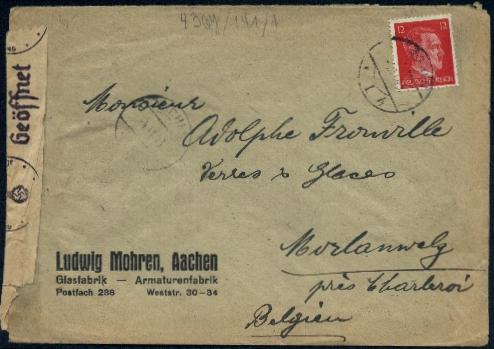 4364/141/1
12 12
DEUTSCHES REICH
Geöffnet
Monsieur
Adolphe Fronville
Verres & Glaces
Morlanwelz
près Charleroi
Belgien
Ludwig Mohren, Aachen
Glasfabrik — Armaturenfabrik
Postfach 286 Weststr. 30–34